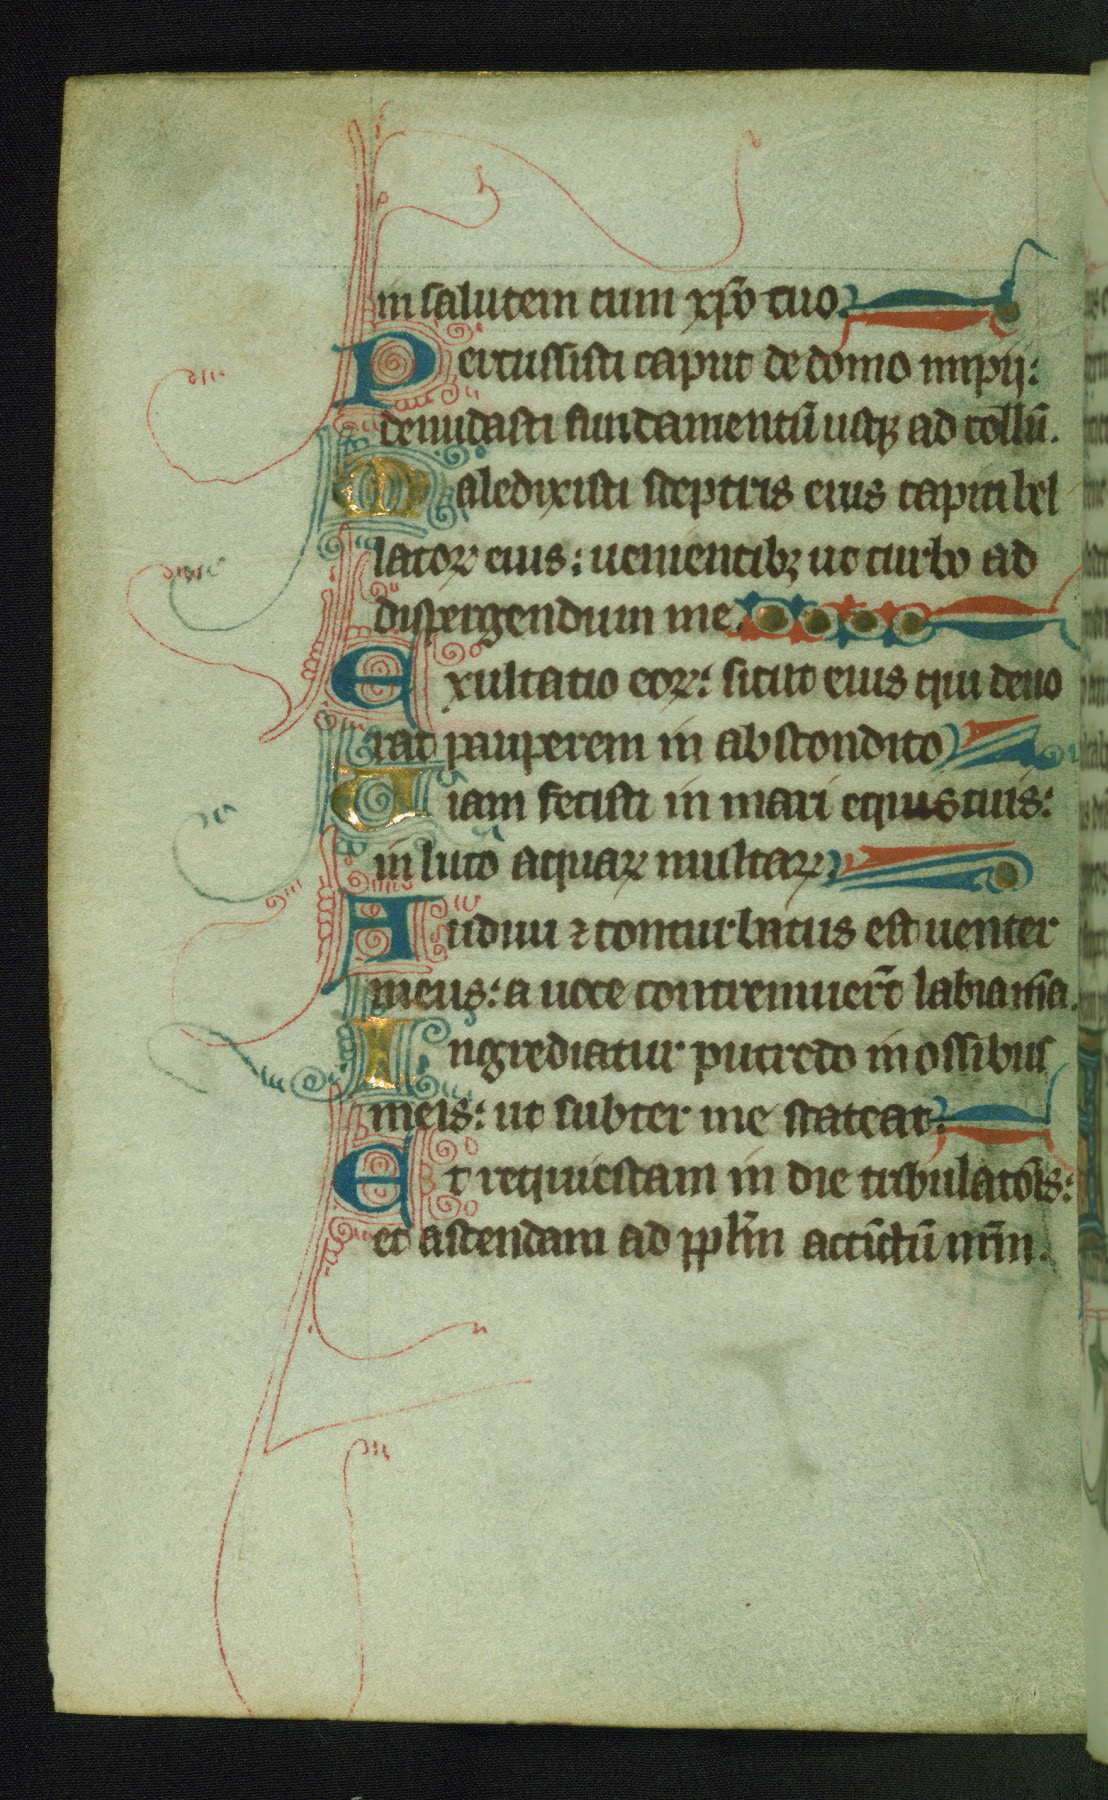 in salutem cum xp̄o tuo.
Percussisti caput de domo impij:
denudasti fundamentū usqꝫ ad collū.
Maledixisti sceptris eius capiti bel
latoꝝ eius: uenientibꝫ ut turbo ad
dispergendum me.
Exultatio eoꝝ: sicut eius qui deuo
rat pauperem in abscondito
Uiam fecisti in mari equis tuis:
in luto aquaꝝ multaꝝ.
Audiui ⁊ conturbatus est uenter
meus: a uoce contremuerūt labia mēa.
Ingrediatur putredo in ossibus
meis: ut subter me scateat.
Et requiescam in die tribulatōis:
et ascendam ad pplm̄ accīctū nr̄m.